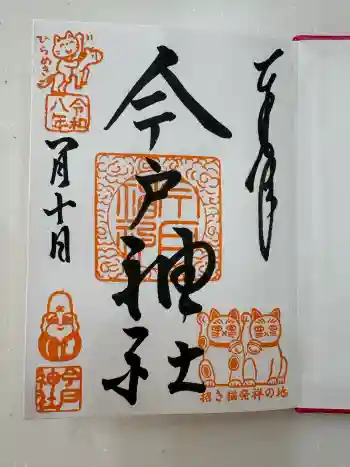 奉拝
今戸神社
ひらめき
令和
八年
一月十日
今戸
神社
招き猫発祥の地